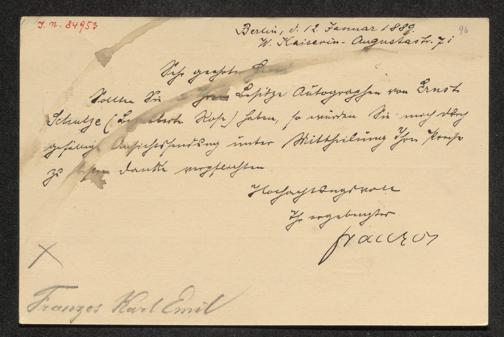 J. N. 84953
96
Berlin, d. 12. Januar 1889
W. Kaiserin-Augustastr. 71
Sehr geehrter Herr
Sollten Sie in Ihrem Besitze Autographen von Ernst
Schulze (Bezauberte Rose) haben, so würden Sie mich durch
gefällige Ansichtssendung unter Mittheilung Ihrer Preise
zu Dank verpflichten
Hochachtungsvoll
Ihr ergebenster
Franzos
Franzos Karl Emil